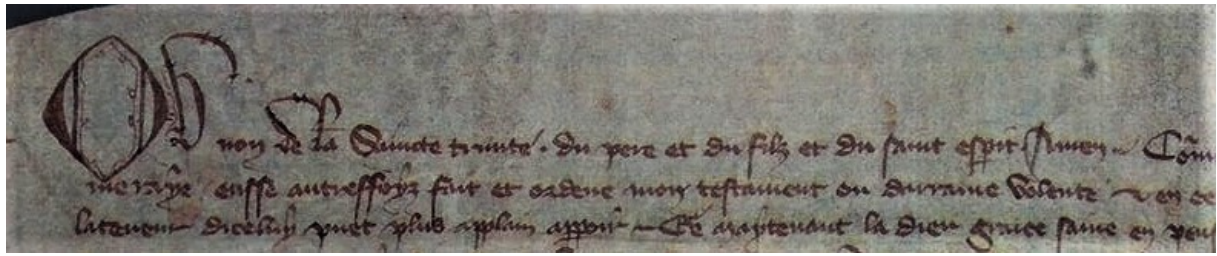 Ou non de la Saincte trinite . du pere et du filz et du saint esperit Amen . Com
eusse autreffoyz fait et ordene mon testament ou darraine volente et en ce
la teneur diceluy puet plus applain apparoir Et maintenant la dieu grace saine en pens